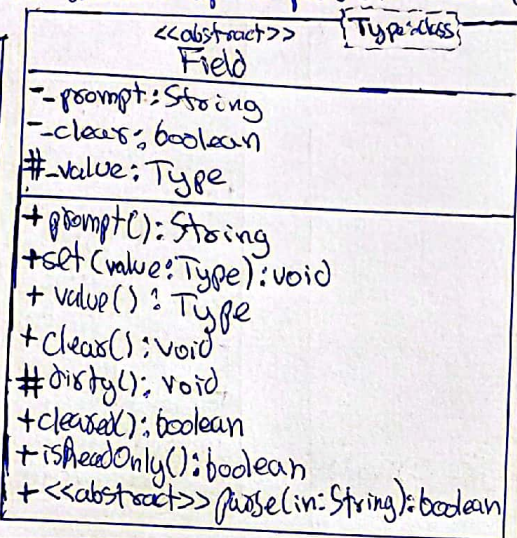 <<abstract>>
Type:class
Field
- _prompt: String
- _clear: boolean
# _value: Type
+ prompt(): String
+ set (value: Type): void
+ value(): Type
+ clear(): void
# dirty(): void
+ cleared(): boolean
+ isReadOnly(): boolean
+ <<abstract>> parse(in: String): boolean